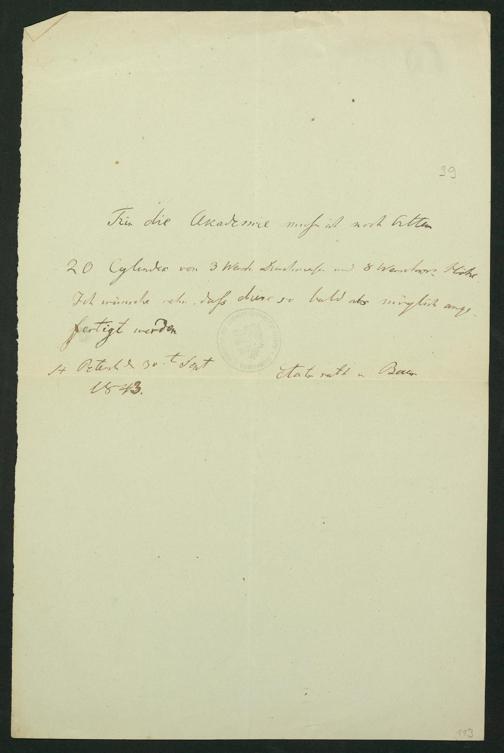 39
Für die Akademie muss ich noch bitten
20 Cylinder von 3 Wersch. Durchmesser und 8 Werschock Höhe.
Ich wünsche sehr, dass diese so bald als möglich ange-
fertigt werden
St Petersb d 30.t Sept
1843.
Etatsrath v Baer
113